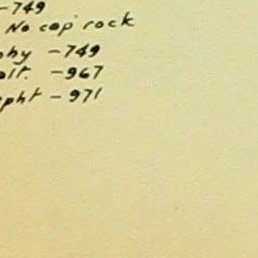 -749
No cap rock
phy -749
olt. -967
apht - 971